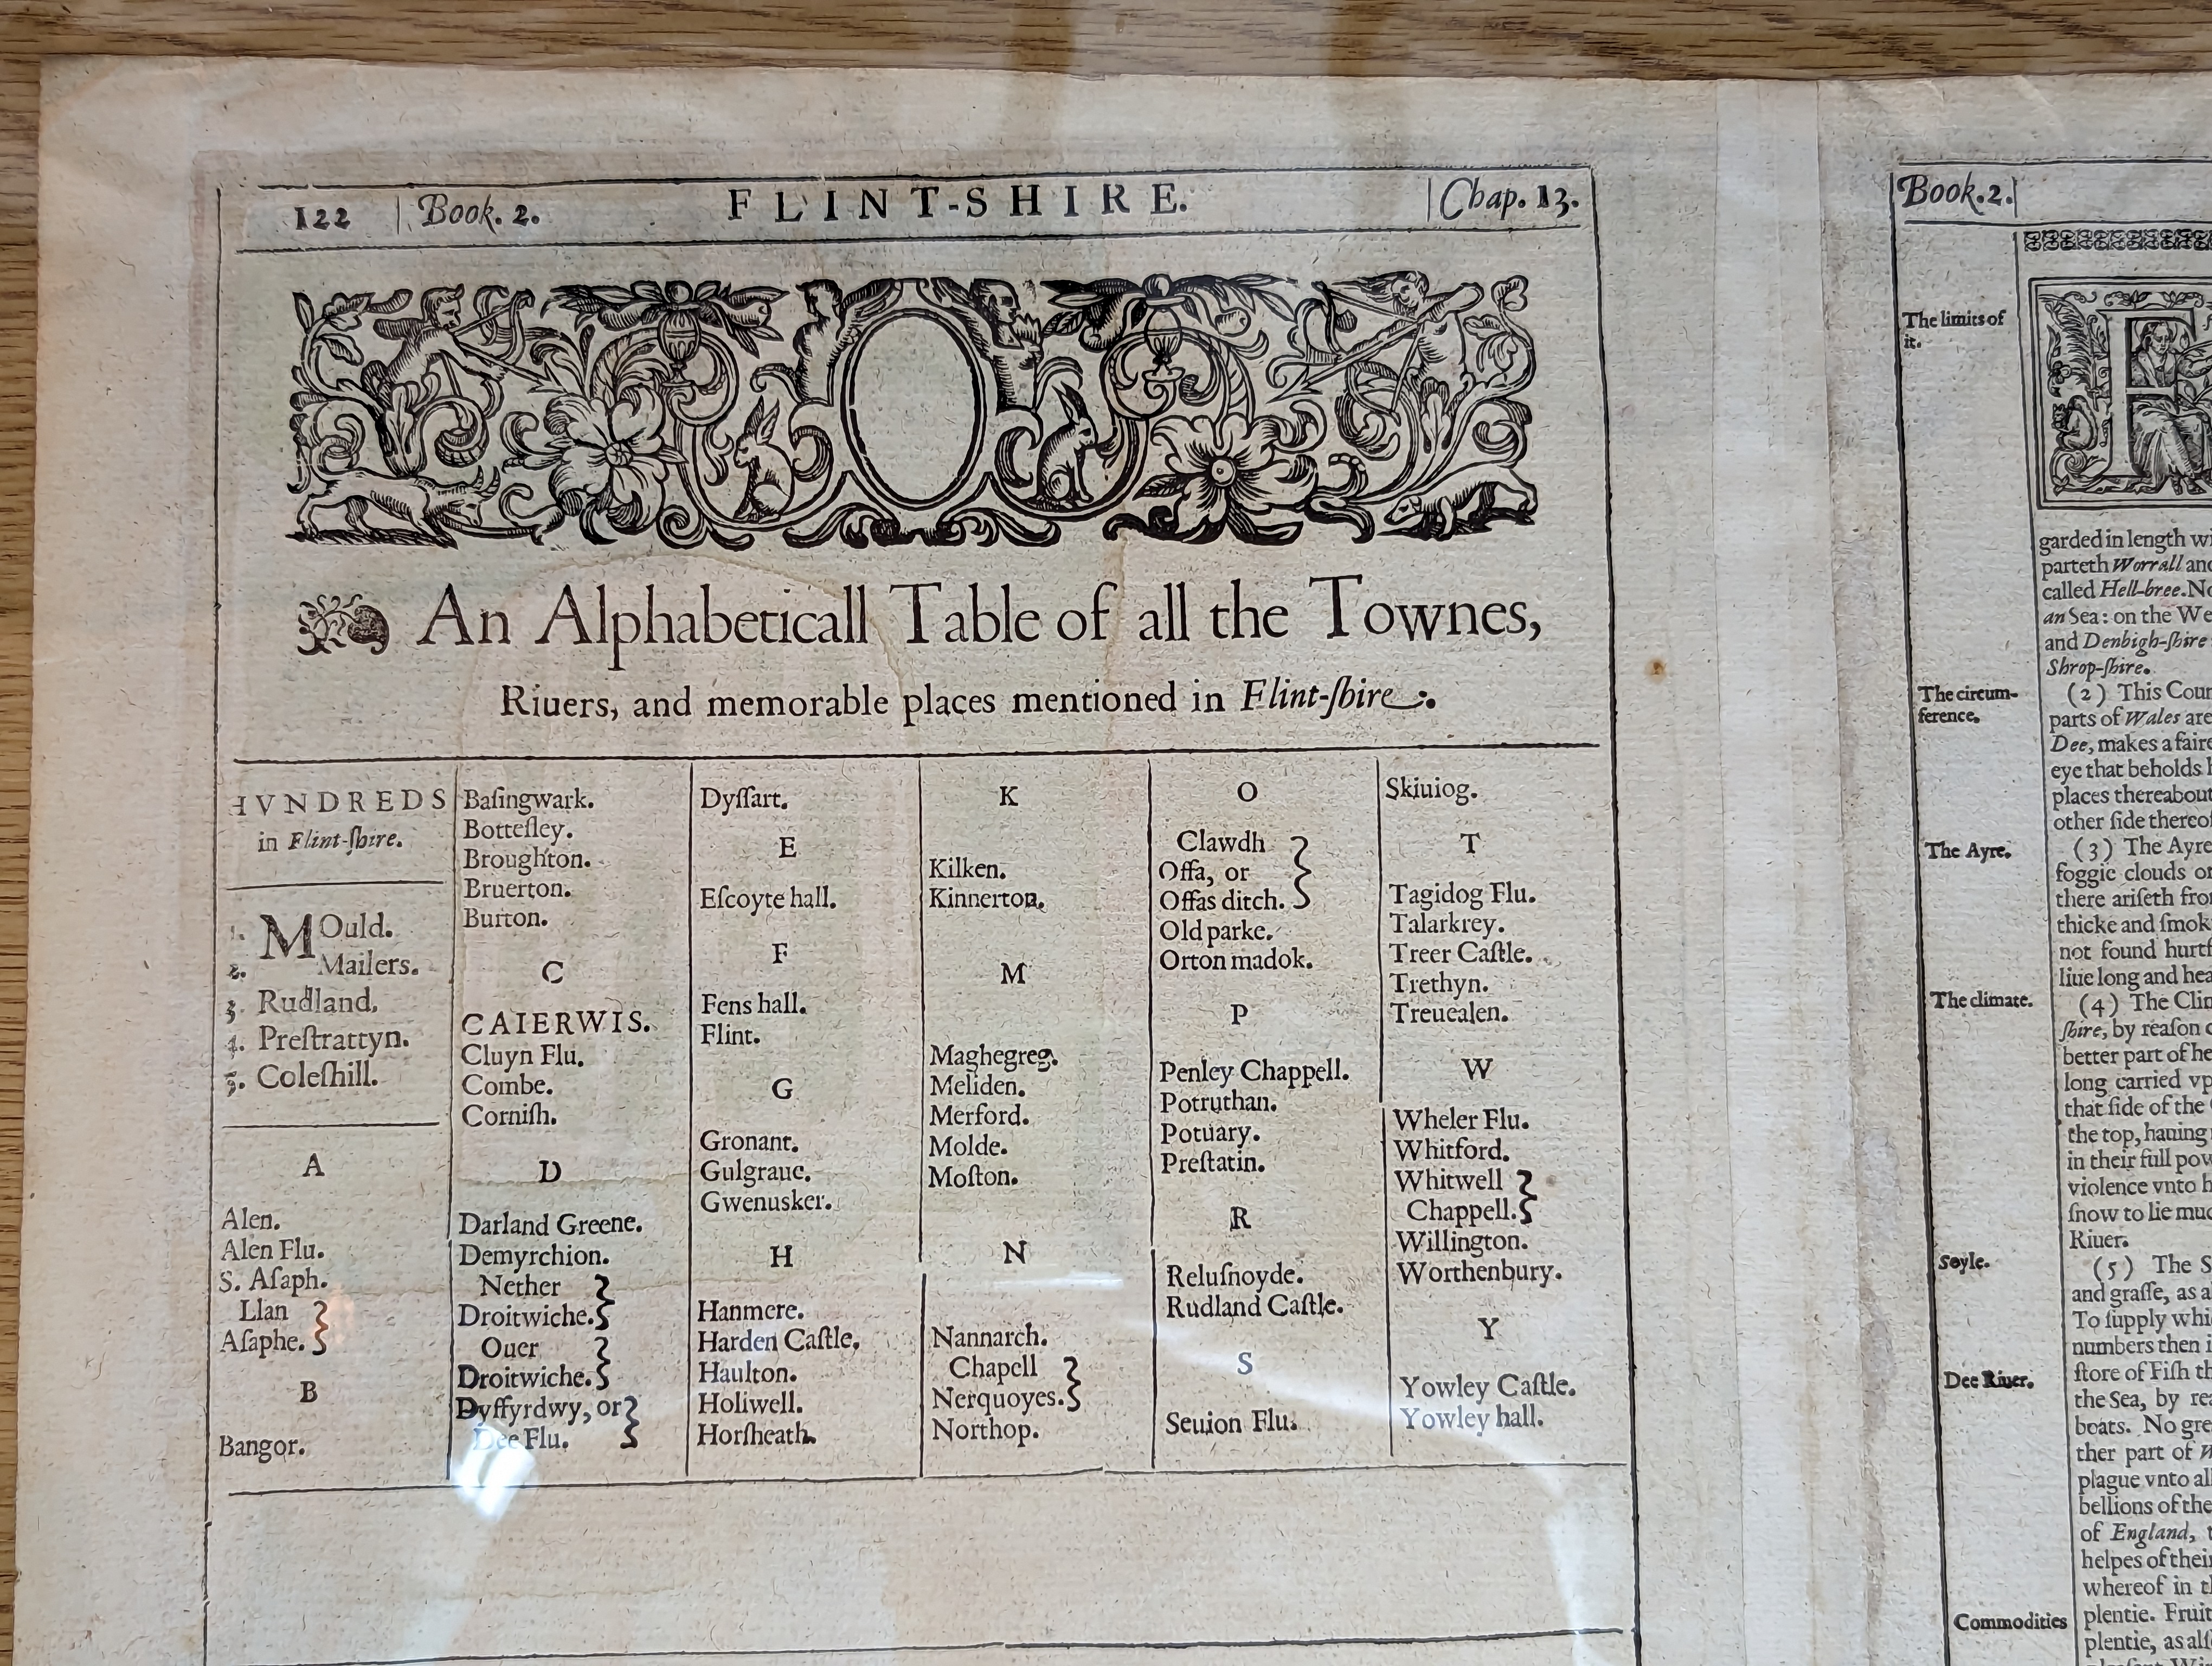 122 Book. 2. FLINT-SHIRE. Chap. 13.
An Alphabeticall Table of all the Townes,
Riuers, and memorable places mentioned in Flint-ſhire.
HVNDREDS
in Flint-ſhire.
1. MOuld.
2. Mailers.
3. Rudland,
4. Preſtrattyn.
5. Coleſhill.
A
Alen.
Alen Flu.
S. Aſaph.
Llan
Aſaphe.
B
Bangor.
Baſingwark.
Botteſley.
Broughton.
Bruerton.
Burton.
C
CAIERWIS.
Cluyn Flu.
Combe.
Corniſh.
D
Darland Greene.
Demyrchion.
Nether
Droitwiche.
Ouer
Droitwiche.
Dyffyrdwy, or
Dee Flu.
Dyſſart.
E
Eſcoyte hall.
F
Fens hall.
Flint.
G
Gronant.
Gulgraue.
Gwenusker.
H
Hanmere.
Harden Caſtle.
Haulton.
Holiwell.
Horſheath.
K
Kilken.
Kinnerton.
M
Maghegreg.
Meliden.
Merford.
Molde.
Moſton.
N
Nannarch.
Chapell
Nerquoyes.
Northop.
O
Clawdh
Offa, or
Offas ditch.
Old parke.
Orton madok.
P
Penley Chappell.
Potruthan.
Potuary.
Preſtatin.
R
Reluſnoyde.
Rudland Caſtle.
S
Seuion Flu.
Skiuiog.
T
Tagidog Flu.
Talarkrey.
Treer Caſtle.
Trethyn.
Treuealen.
W
Wheler Flu.
Whitford.
Whitwell
Chappell.
Willington.
Worthenbury.
Y
Yowley Caſtle.
Yowley hall.
Book. 2.
The limits of
it.
garded in length
parteth Worrall
called Hell-bree.
an Sea: on the
and Denbigh-ſhire
Shrop-ſhire.
The circum-
ference.
(2) This
parts of Wales are
Dee, makes a faire
eye that beholds
places thereabout
other ſide
The Ayre.
(3) The Ayre
foggie clouds
there ariſeth
thicke and
not found
liue long and
The climate.
(4) The
ſhire, by reaſon
better part of
long carried
that ſide of the
the top, hauing
in their full
violence vnto
ſnow to lie
Riuer.
Soyle.
(5) The
and graſſe, as
To ſupply
numbers then
ſtore of Fiſh
Dee Riuer.
the Sea, by
boats. No
ther part of
plague vnto
bellions of the
of England,
helpes of their
whereof in
Commodities
plentie.
plentie,